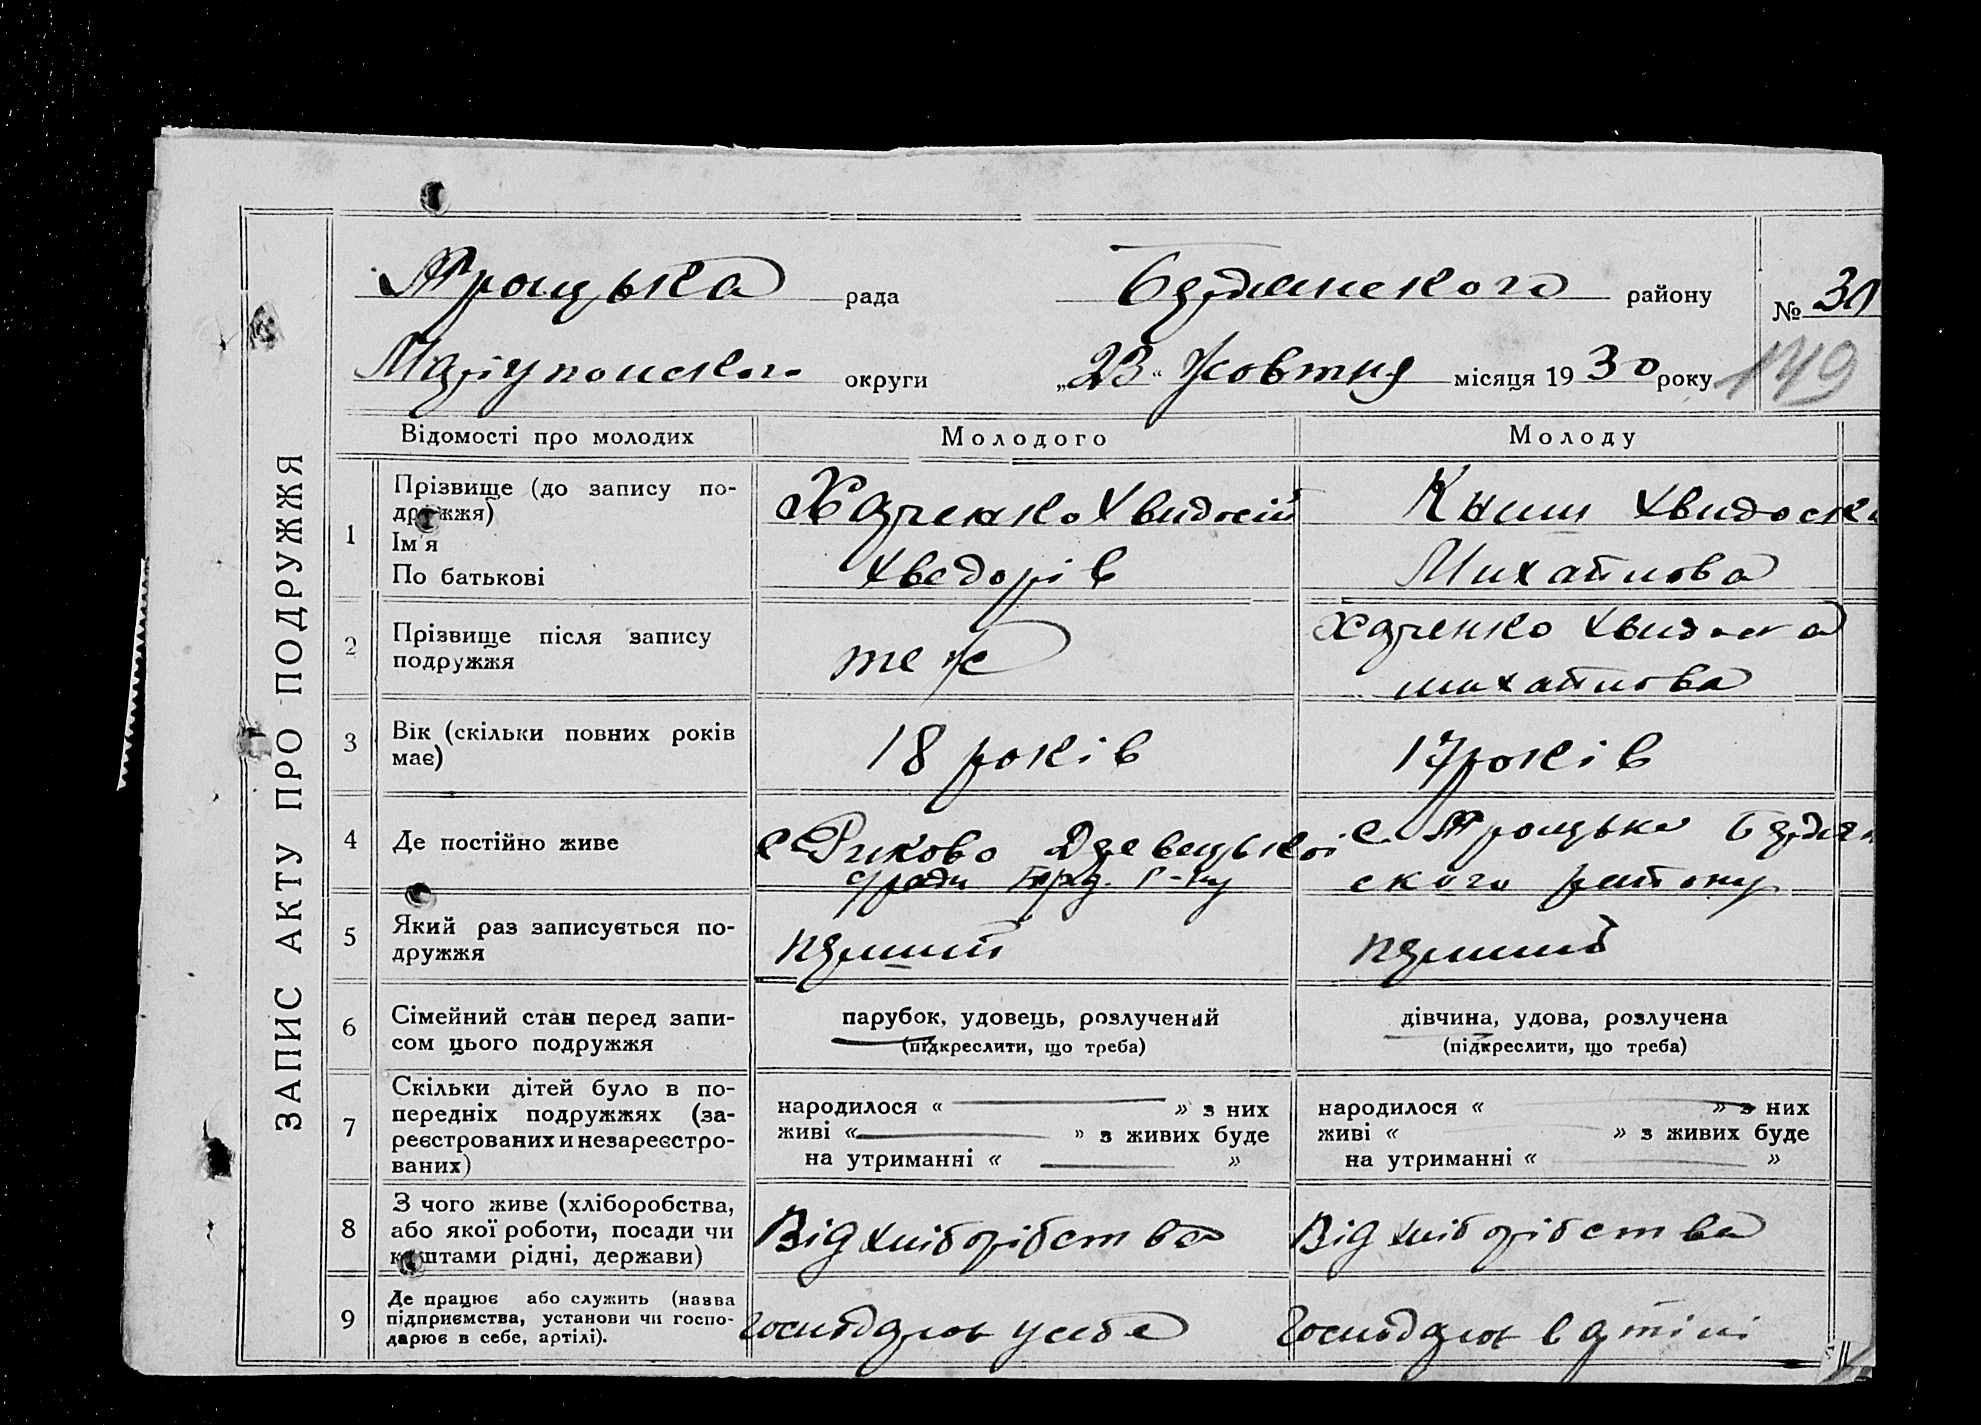 ЗАПИС АКТУ ПРО ПОДРУЖЖЯ
Троцька рада Бердянского району № 30
Маріупольского округи „23“ Жовтня місяця 1930 року 149
Відомості про молодих Молодого Молоду
1 Прізвище (до запису по-
дружжя)
Ім'я
По батькові
Харченко Хвидосій
Хведорів
Книш Хвидоск
Михайлова
2 Прізвище після запису
подружжя
те ж
Харченко Хвидоска
михайлова
3 Вік (скільки повних років
має)
18 років
17 років
4 Де постійно живе
с Риково Деревецької
сради Берд. Р-ну
с. Троцьке Бердян
ского району
5 Який раз записується по-
дружжя
перший
перший
6 Сімейний стан перед запи-
сом цього подружжя
парубок, удовець, розлучений
(підкреслити, що треба)
дівчина, удова, розлучена
(підкреслити, що треба)
7 Скільки дітей було в по-
передніх подружжях (за-
реєстрованих и незареєстро-
ваних)
народилося « » з них
живі « » з живих буде
на утриманні « »
народилося « » з них
живі « » з живих буде
на утриманні « »
8 З чого живе (хліборобства,
або якої роботи, посади чи
коштами рідні, держави)
Від хліборібства
Від хліборібства
9 Де працює або служить (назва
підприємства, установи чи госпо-
дарює в себе, артілі).
господарює у себе
Господарює в артілі